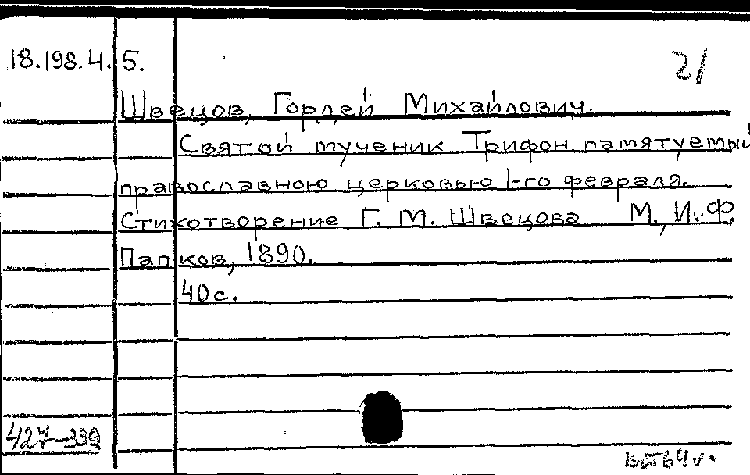 18.198.4.5.
21
Швецов, Гордей Михайлович.
Святой мученик Трифон памятуемый
православною церковью 1-го февраля.
Стихотворение Г. М. Швецова М., И. Ф.
Папков, 1890.
40с.
427-339